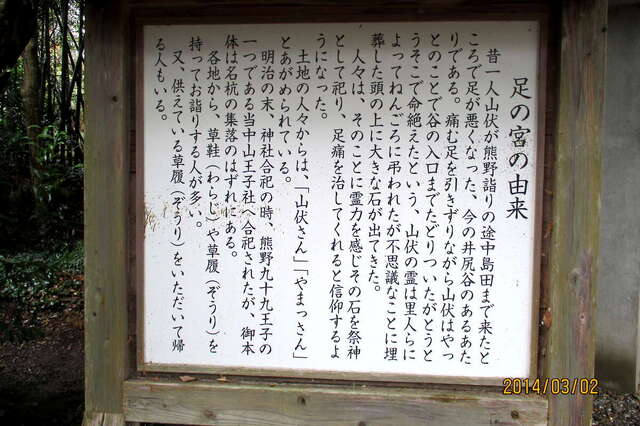 足の宮の由来
昔一人山伏が熊野詣りの途中島田まで来たと
ころで足が悪くなった、今の井尻谷のあるあた
りである。痛む足を引きずりながら山伏はやっ
とのことで谷の入口までたどりついたがとうと
うそこで命絶えたという、山伏の霊は里人らに
よってねんごろに弔われたが不思議なことに埋
葬した頭の上に大きな石が出てきた。
人々は、そのことに霊力を感じその石を祭神
として祀り、足痛を治してくれると信仰するよ
うになった。
土地の人々からは、「山伏さん」「やまっさん」
とあがめられている。
明治の末、神社合祀の時、熊野九十九王子の
一つである当中山王子社へ合祀されたが、御本
体は名杭の集落のはずれにある。
各地から、草鞋(わらじ)や草履(ぞうり)を
持ってお詣りする人が多い。
又、供えている草履(ぞうり)をいただいて帰
る人もいる。
2014/03/02